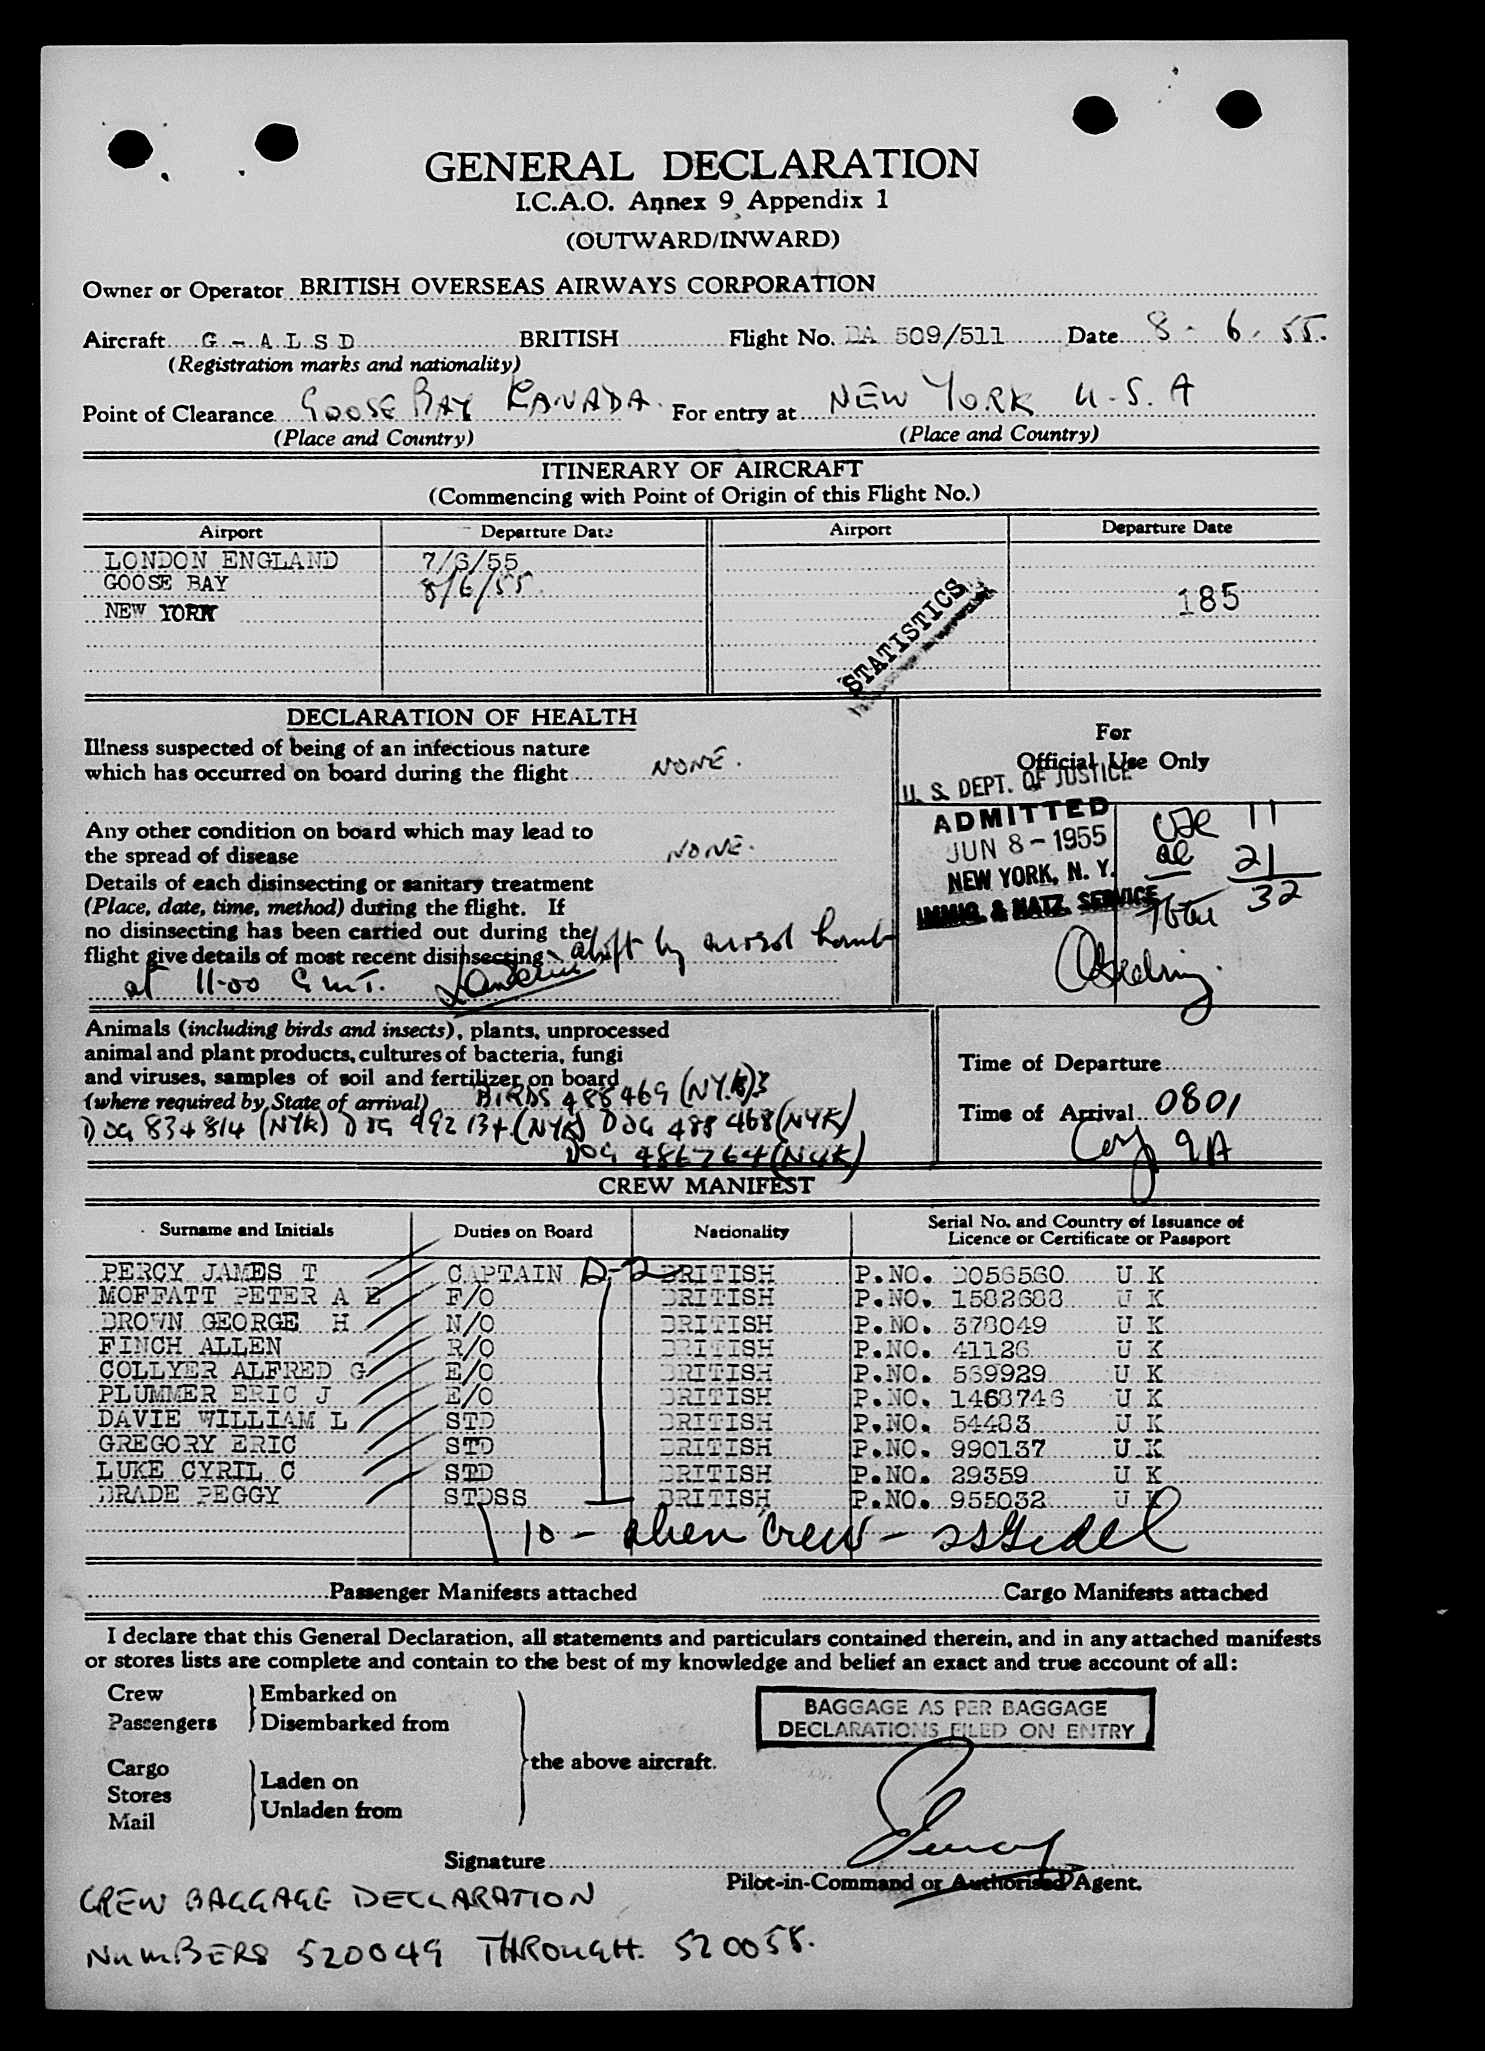 GENERAL DECLARATION
I.C.A.O. Annex 9 Appendix 1
(OUTWARD/INWARD)
Owner or Operator BRITISH OVERSEAS AIRWAYS CORPORATION
Aircraft G - A L S D BRITISH Flight No. BA 509/511 Date 8 - 6 - 55.
(Registration marks and nationality)
Point of Clearance GOOSE BAY KANADA. For entry at NEW YORK U.S.A
(Place and Country) (Place and Country)
ITINERARY OF AIRCRAFT
(Commencing with Point of Origin of this Flight No.)
Airport Departure Date Airport Departure Date
LONDON ENGLAND 7/6/55
GOOSE BAY 8/6/55.
NEW YORK
185
STATISTICS
DECLARATION OF HEALTH
Illness suspected of being of an infectious nature
which has occurred on board during the flight NONE.
Any other condition on board which may lead to
the spread of disease NONE.
Details of each disinsecting or sanitary treatment
(Place, date, time, method) during the flight. If
no disinsecting has been carried out during the
flight give details of most recent disinsecting aloft by aerosol bomb
at 11-00 G.M.T.
For
Official Use Only
U. S. DEPT. OF JUSTICE
ADMITTED
JUN 8 - 1955
NEW YORK, N. Y.
IMMIG. & NATZ. SERVICE
USC 11
al 21
Total 32
Animals (including birds and insects), plants, unprocessed
animal and plant products, cultures of bacteria, fungi
and viruses, samples of soil and fertilizer on board
(where required by State of arrival) BIRDS 488469 (NYK)3
DOG 834814 (NYK) DOG 992134 (NYK) DOG 488468 (NYK)
DOG 486764 (NYK)
Time of Departure
Time of Arrival 0801
9A
CREW MANIFEST
Surname and Initials Duties on Board Nationality Serial No. and Country of Issuance of
Licence or Certificate or Passport
PERCY JAMES T CAPTAIN D-2 BRITISH P.NO. 2056560 U K
MOFFATT PETER A E F/O BRITISH P.NO. 1582688 U K
BROWN GEORGE H N/O BRITISH P.NO. 378049 U K
FINCH ALLEN R/O BRITISH P.NO. 41126 U K
COLLYER ALFRED G E/O BRITISH P.NO. 569929 U K
PLUMMER ERIC J E/O BRITISH P.NO. 1468746 U K
DAVIE WILLIAM L STD BRITISH P.NO. 54483 U K
GREGORY ERIC STD BRITISH P.NO. 990137 U K
LUKE CYRIL C STD BRITISH P.NO. 29359 U K
BRADE PEGGY STDSS BRITISH P.NO. 955032 U K
10 - alien crew -
Passenger Manifests attached Cargo Manifests attached
I declare that this General Declaration, all statements and particulars contained therein, and in any attached manifests
or stores lists are complete and contain to the best of my knowledge and belief an exact and true account of all:
Crew Embarked on
Passengers Disembarked from
the above aircraft.
Cargo
Stores Laden on
Mail Unladen from
BAGGAGE AS PER BAGGAGE
DECLARATIONS FILED ON ENTRY
Signature
Pilot-in-Command or Authorised Agent.
CREW BAGGAGE DECLARATION
NUMBERS 520049 THROUGH 520058.